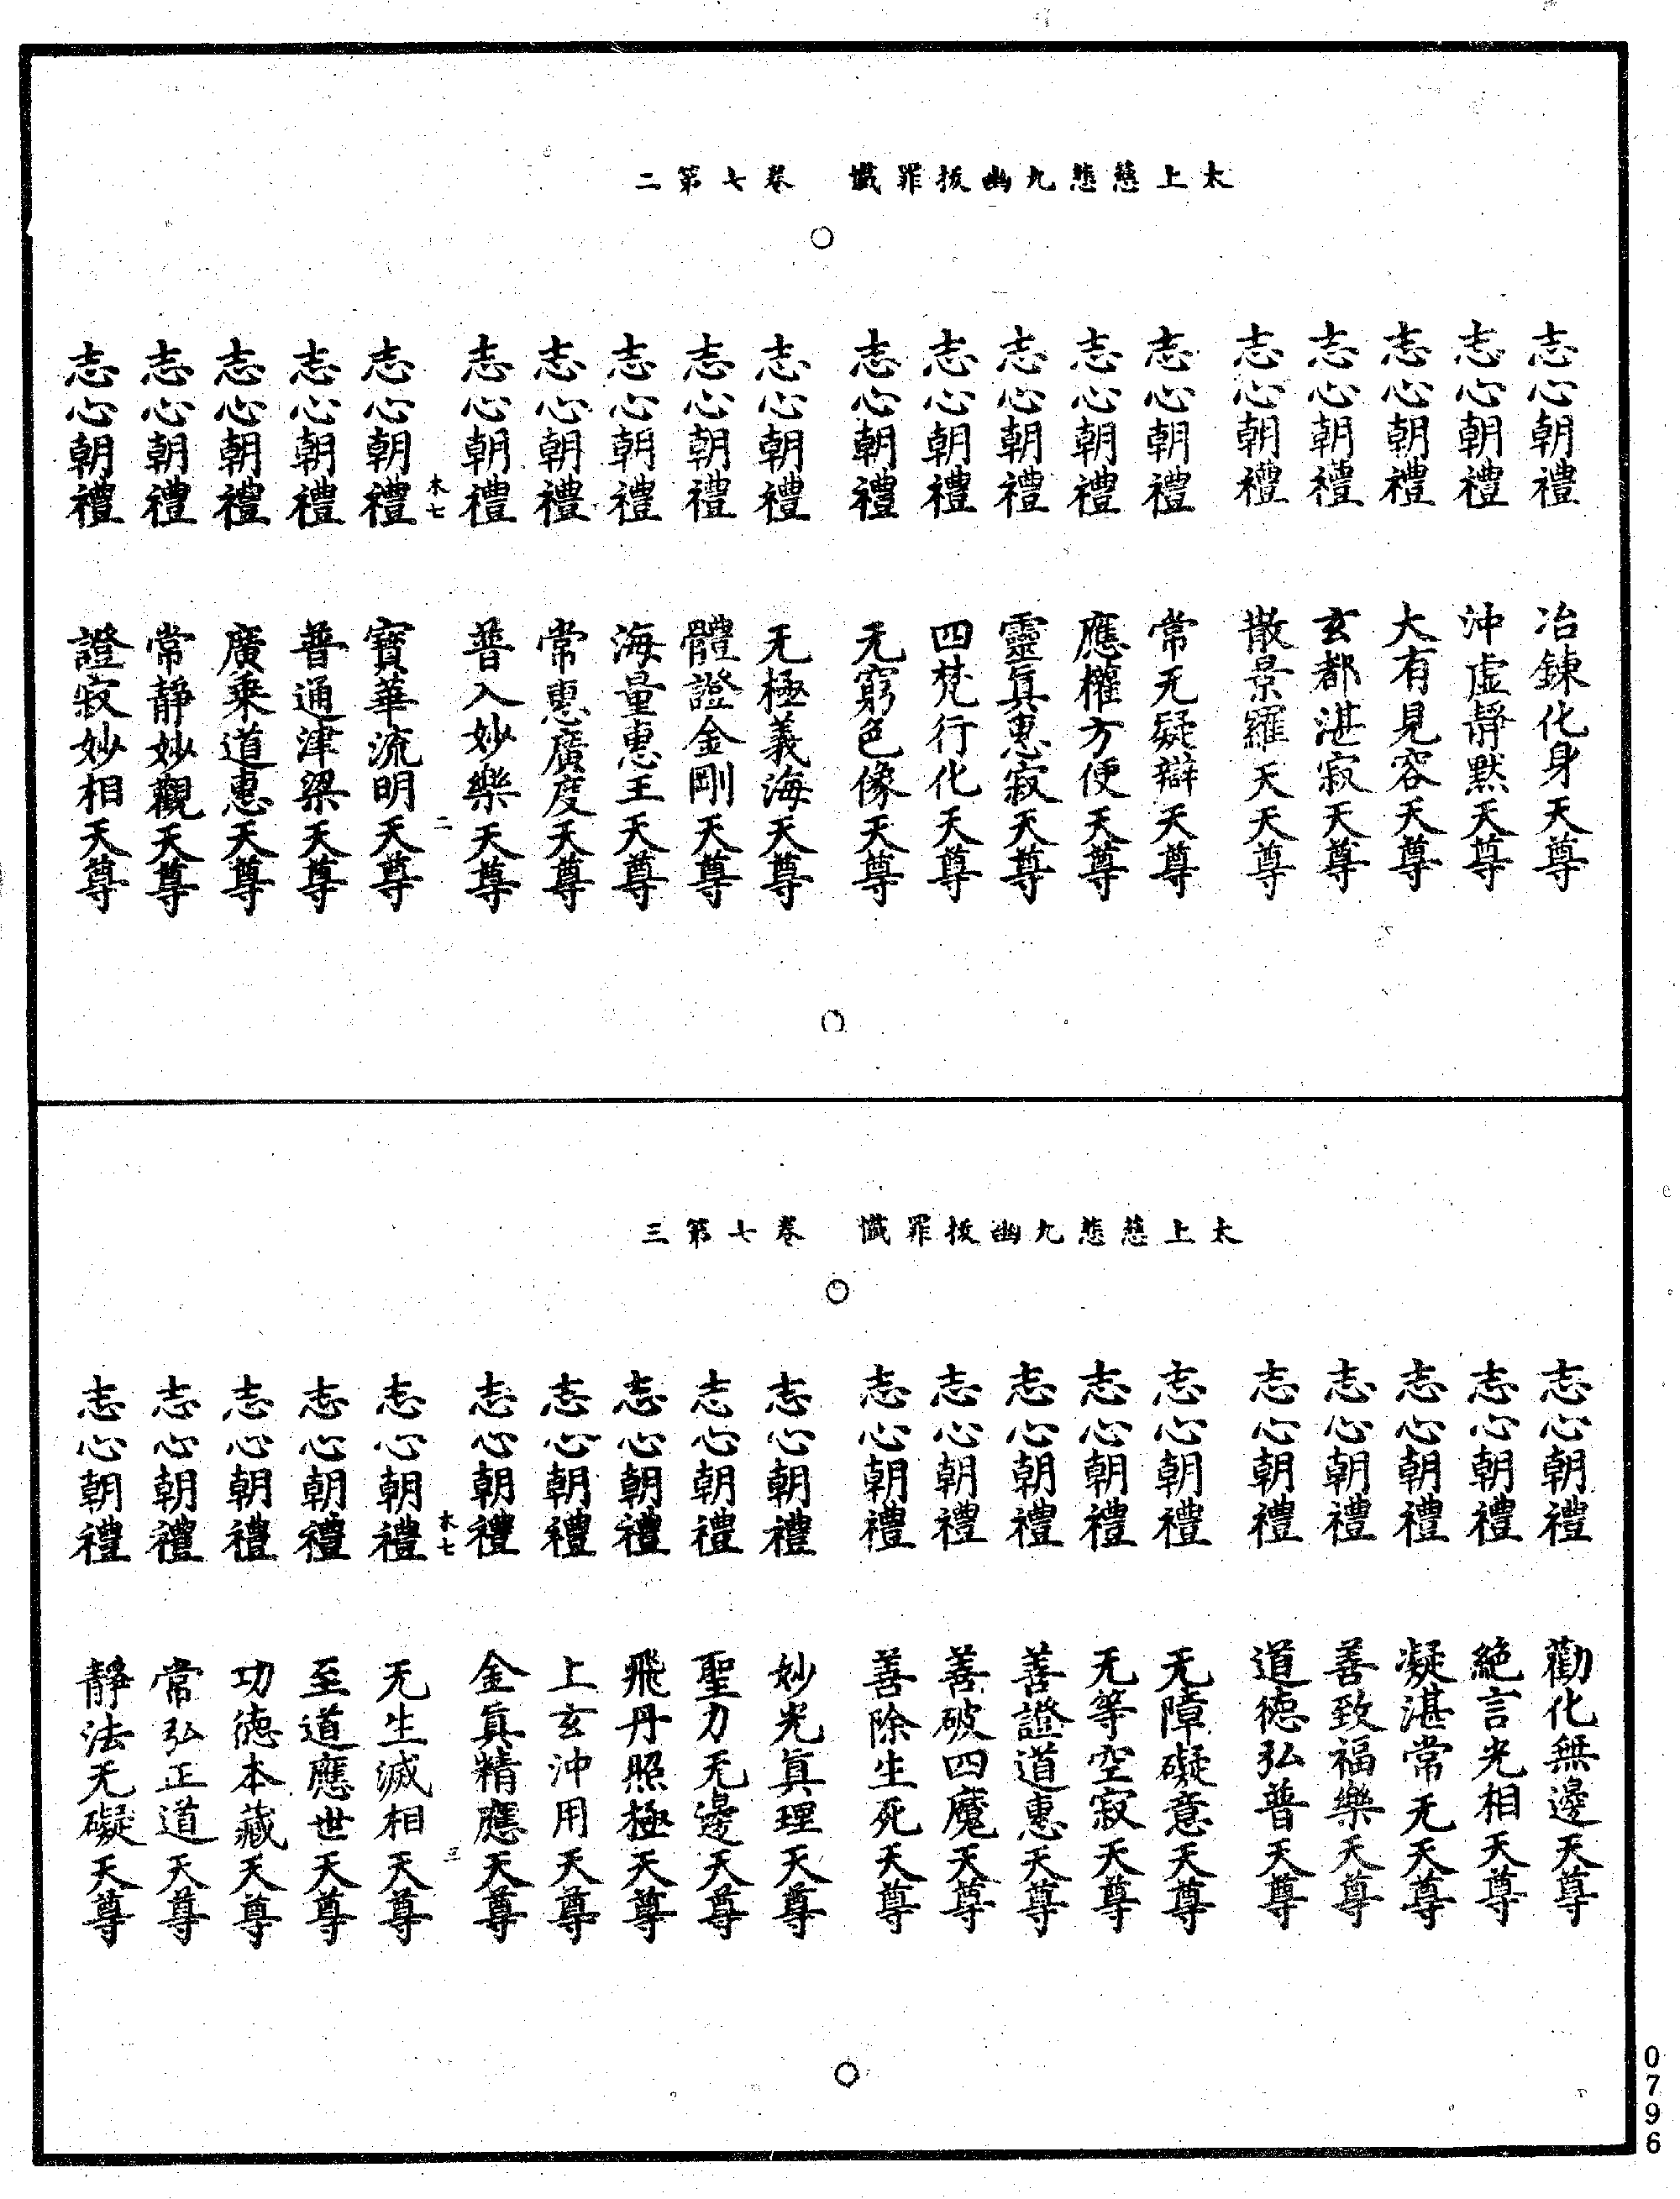 太上慈悲九幽拔罪懺　卷七第二
志心朝禮　冶鍊化身天尊
志心朝禮　沖虛靜默天尊
志心朝禮　大有見容天尊
志心朝禮　玄都湛寂天尊
志心朝禮　散景羅天天尊
志心朝禮　常无疑辯天尊
志心朝禮　應權方便天尊
志心朝禮　靈真惠寂天尊
志心朝禮　四梵行化天尊
志心朝禮　无窮色像天尊
志心朝禮　无極義海天尊
志心朝禮　體證金剛天尊
志心朝禮　海量惠王天尊
志心朝禮　常惠廣度天尊
志心朝禮　普入妙樂天尊
木七　二
志心朝禮　寶華流明天尊
志心朝禮　普通津梁天尊
志心朝禮　廣乘道惠天尊
志心朝禮　常靜妙觀天尊
志心朝禮　證寂妙相天尊
太上慈悲九幽拔罪懺　卷七第三
志心朝禮　勸化無邊天尊
志心朝禮　絕言光相天尊
志心朝禮　凝湛常无天尊
志心朝禮　善致福樂天尊
志心朝禮　道德弘普天尊
志心朝禮　无障礙意天尊
志心朝禮　无等空寂天尊
志心朝禮　善證道惠天尊
志心朝禮　善破四魔天尊
志心朝禮　善除生死天尊
志心朝禮　妙光真理天尊
志心朝禮　聖力无邊天尊
志心朝禮　飛丹照極天尊
志心朝禮　上玄沖用天尊
志心朝禮　金真精應天尊
木七　三
志心朝禮　无生滅相天尊
志心朝禮　至道應世天尊
志心朝禮　功德本藏天尊
志心朝禮　常弘正道天尊
志心朝禮　靜法无礙天尊
0796